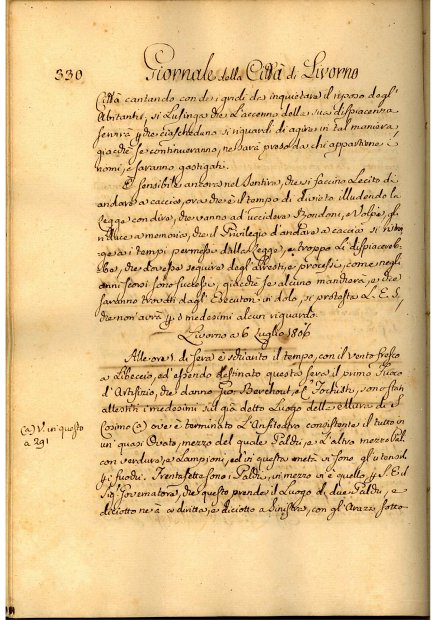 330 Giornale della Città di Livorno
Città cantando con de, gridi da inquietare il riposo degl'
Abitanti, si Lusinga che L'accenno della sua dispiacenza
servirà p che ciascheduno si riguardi di agire in tal maniera,
giacchè se continueranno, ne sarà preso da chi appartiene i
nomi, e saranno gastigati.
È sensibile ancora nel Sentire, che si faccino Lecito di
andare a caccia, ora che è il tempo di divieto illudendo la
Legge con dire, che vanno ad uccidere Rondoni, e Volpe, gl'
riduce a memoria, che il Privilegio d'andare a caccia si
ge a i tempi permessi dalla Legge, e troppo Li dispiacereb=
be, che dovesse seguire degl'Arresti, e processi, come negli
anni scorsi sono successi, giacchè se alcuno mancherà, e che
saranno trovati dagl'Esecutori in dolo, si protesta L. E. S.,
che non avrà p i medesimi alcun riguardo.
Livorno a 6 Luglio 1806
Alle ore 1 di sera è schiarito il tempo, con il vento fresco
a Libeccio, ed essendo destinato questa sera il primo Fuoco
d'Artifizio, che danno Gior. Berchout, e C. sono stati
allestiti i medesimi sul già detto Luogo delle Mura di S.
Cosimo (a) ove è terminato L'Anfiteatro consistente il tutto in
un'quasi Ovato, mezzo del quale Palchi, e L'altro mezzo
con verdura, e Lampioni, ed in questa metà vi sono gl'utensili
p i fuochi. Trentasette sono i Palchi, in mezzo vi è quello p S. E. il
Sig. Governatore, che questo prende il Luogo di due Palchi, e
diciotto ne è a diritta, e diciotto a Sinistra, con gl'Arazzi sotto
(a) V. in questo
a 291